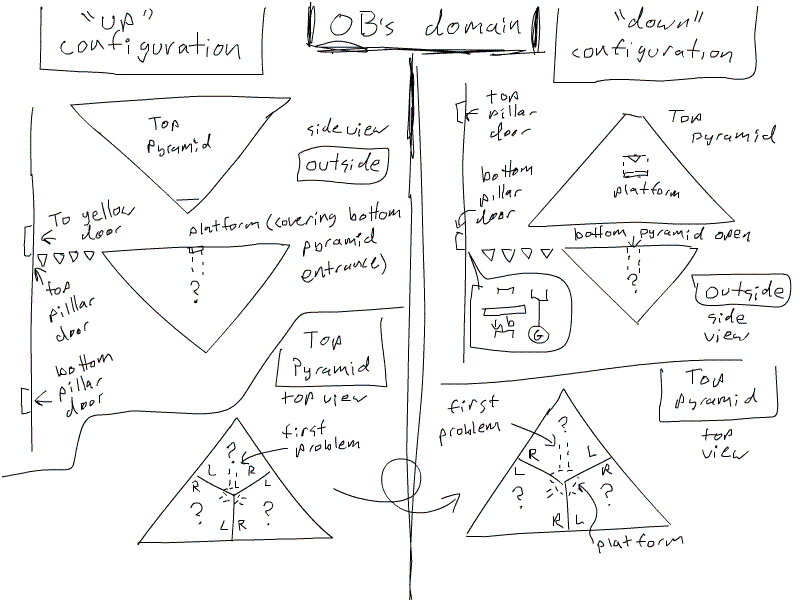 "up"
configuration
OB's domain
"down"
configuration
Top
Pyramid
side view
outside
To yellow
door
platform (covering bottom
pyramid
entrance)
?
top
pilllar
door
bottom
pillar
door
Top
Pyramid
top view
first
problem
?
L
R
R
L
?
?
L
R
top
pillar
door
Top
pyramid
bottom
pillar
door
platform
bottom pyramid open
?
b
G
outside
side
view
Top
pyramid
top
view
first
problem
?
R
L
L
R
?
?
R
L
platform